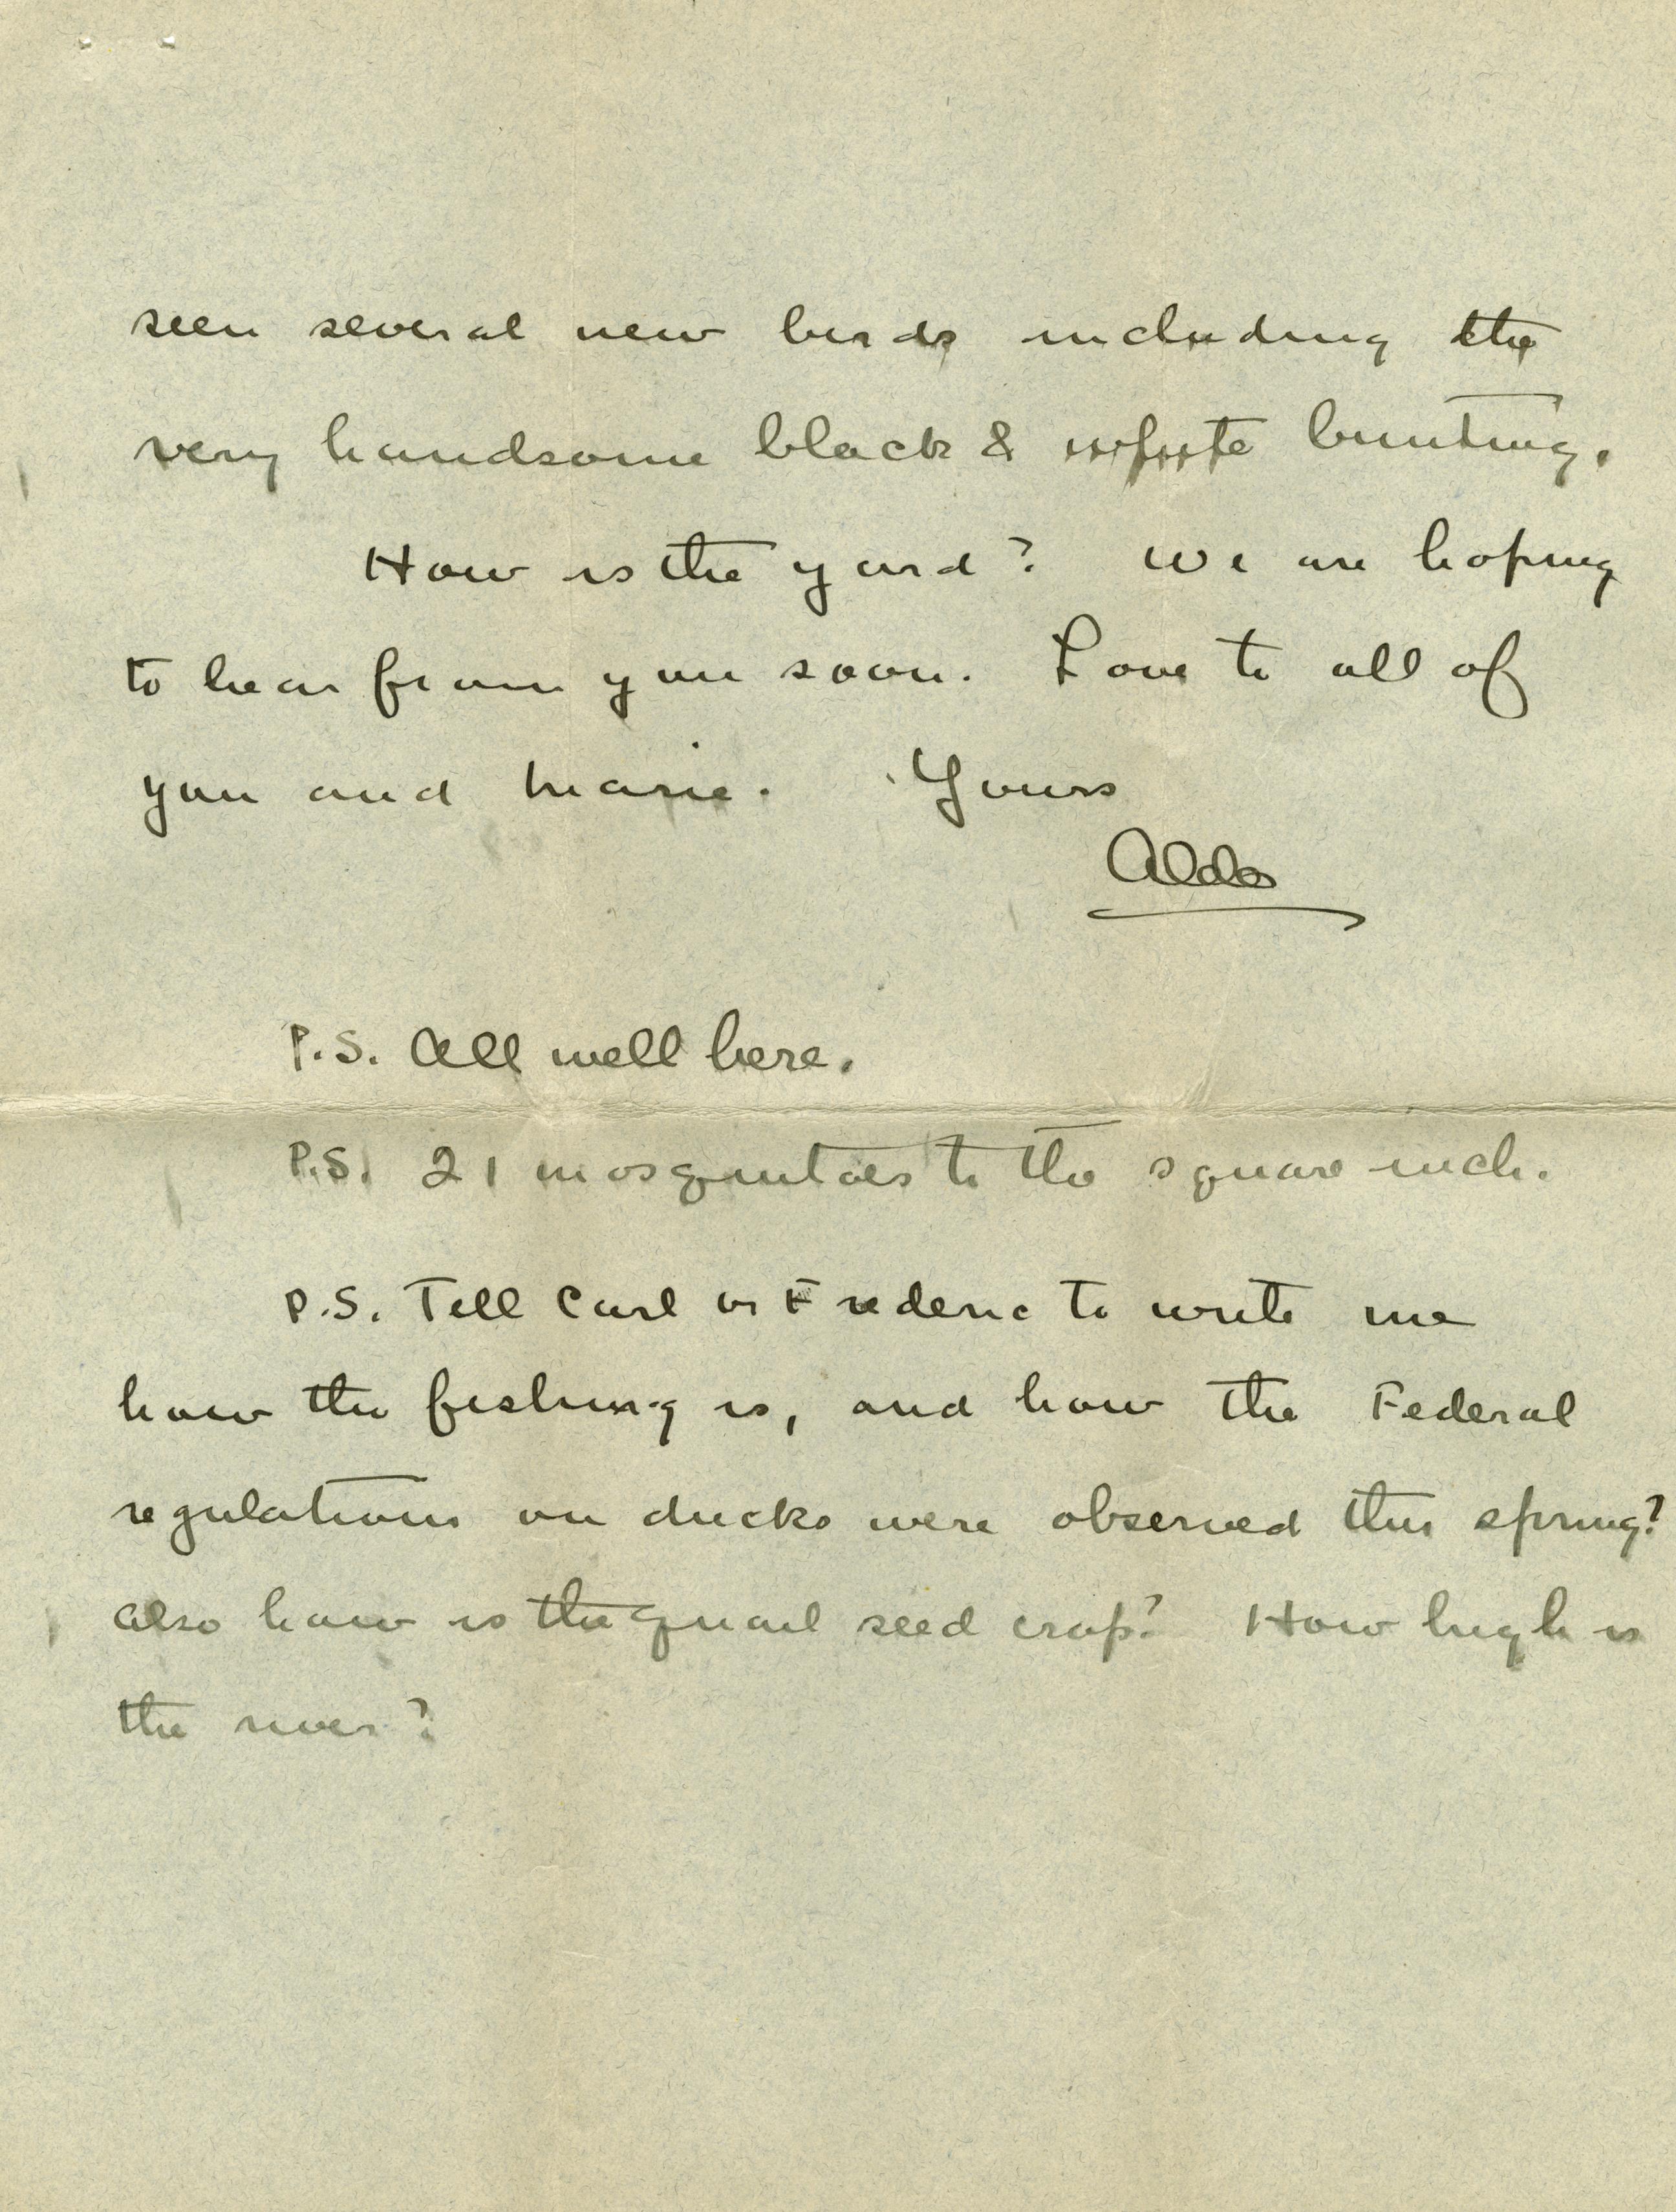 seen several new birds including the
very handsome black & white bunting.
How is the yard? We are hoping
to hear from you soon. Love to all of
you and Marie. Yours
Aldo
P.S. All well here.
P.S. 21 mosquitoes to the square inch.
P.S. Tell Carl or Frederic to write me
how the fishing is, and how the Federal
regulations on ducks were observed this spring?
Also how is the quail seed crop? How high is
the river?